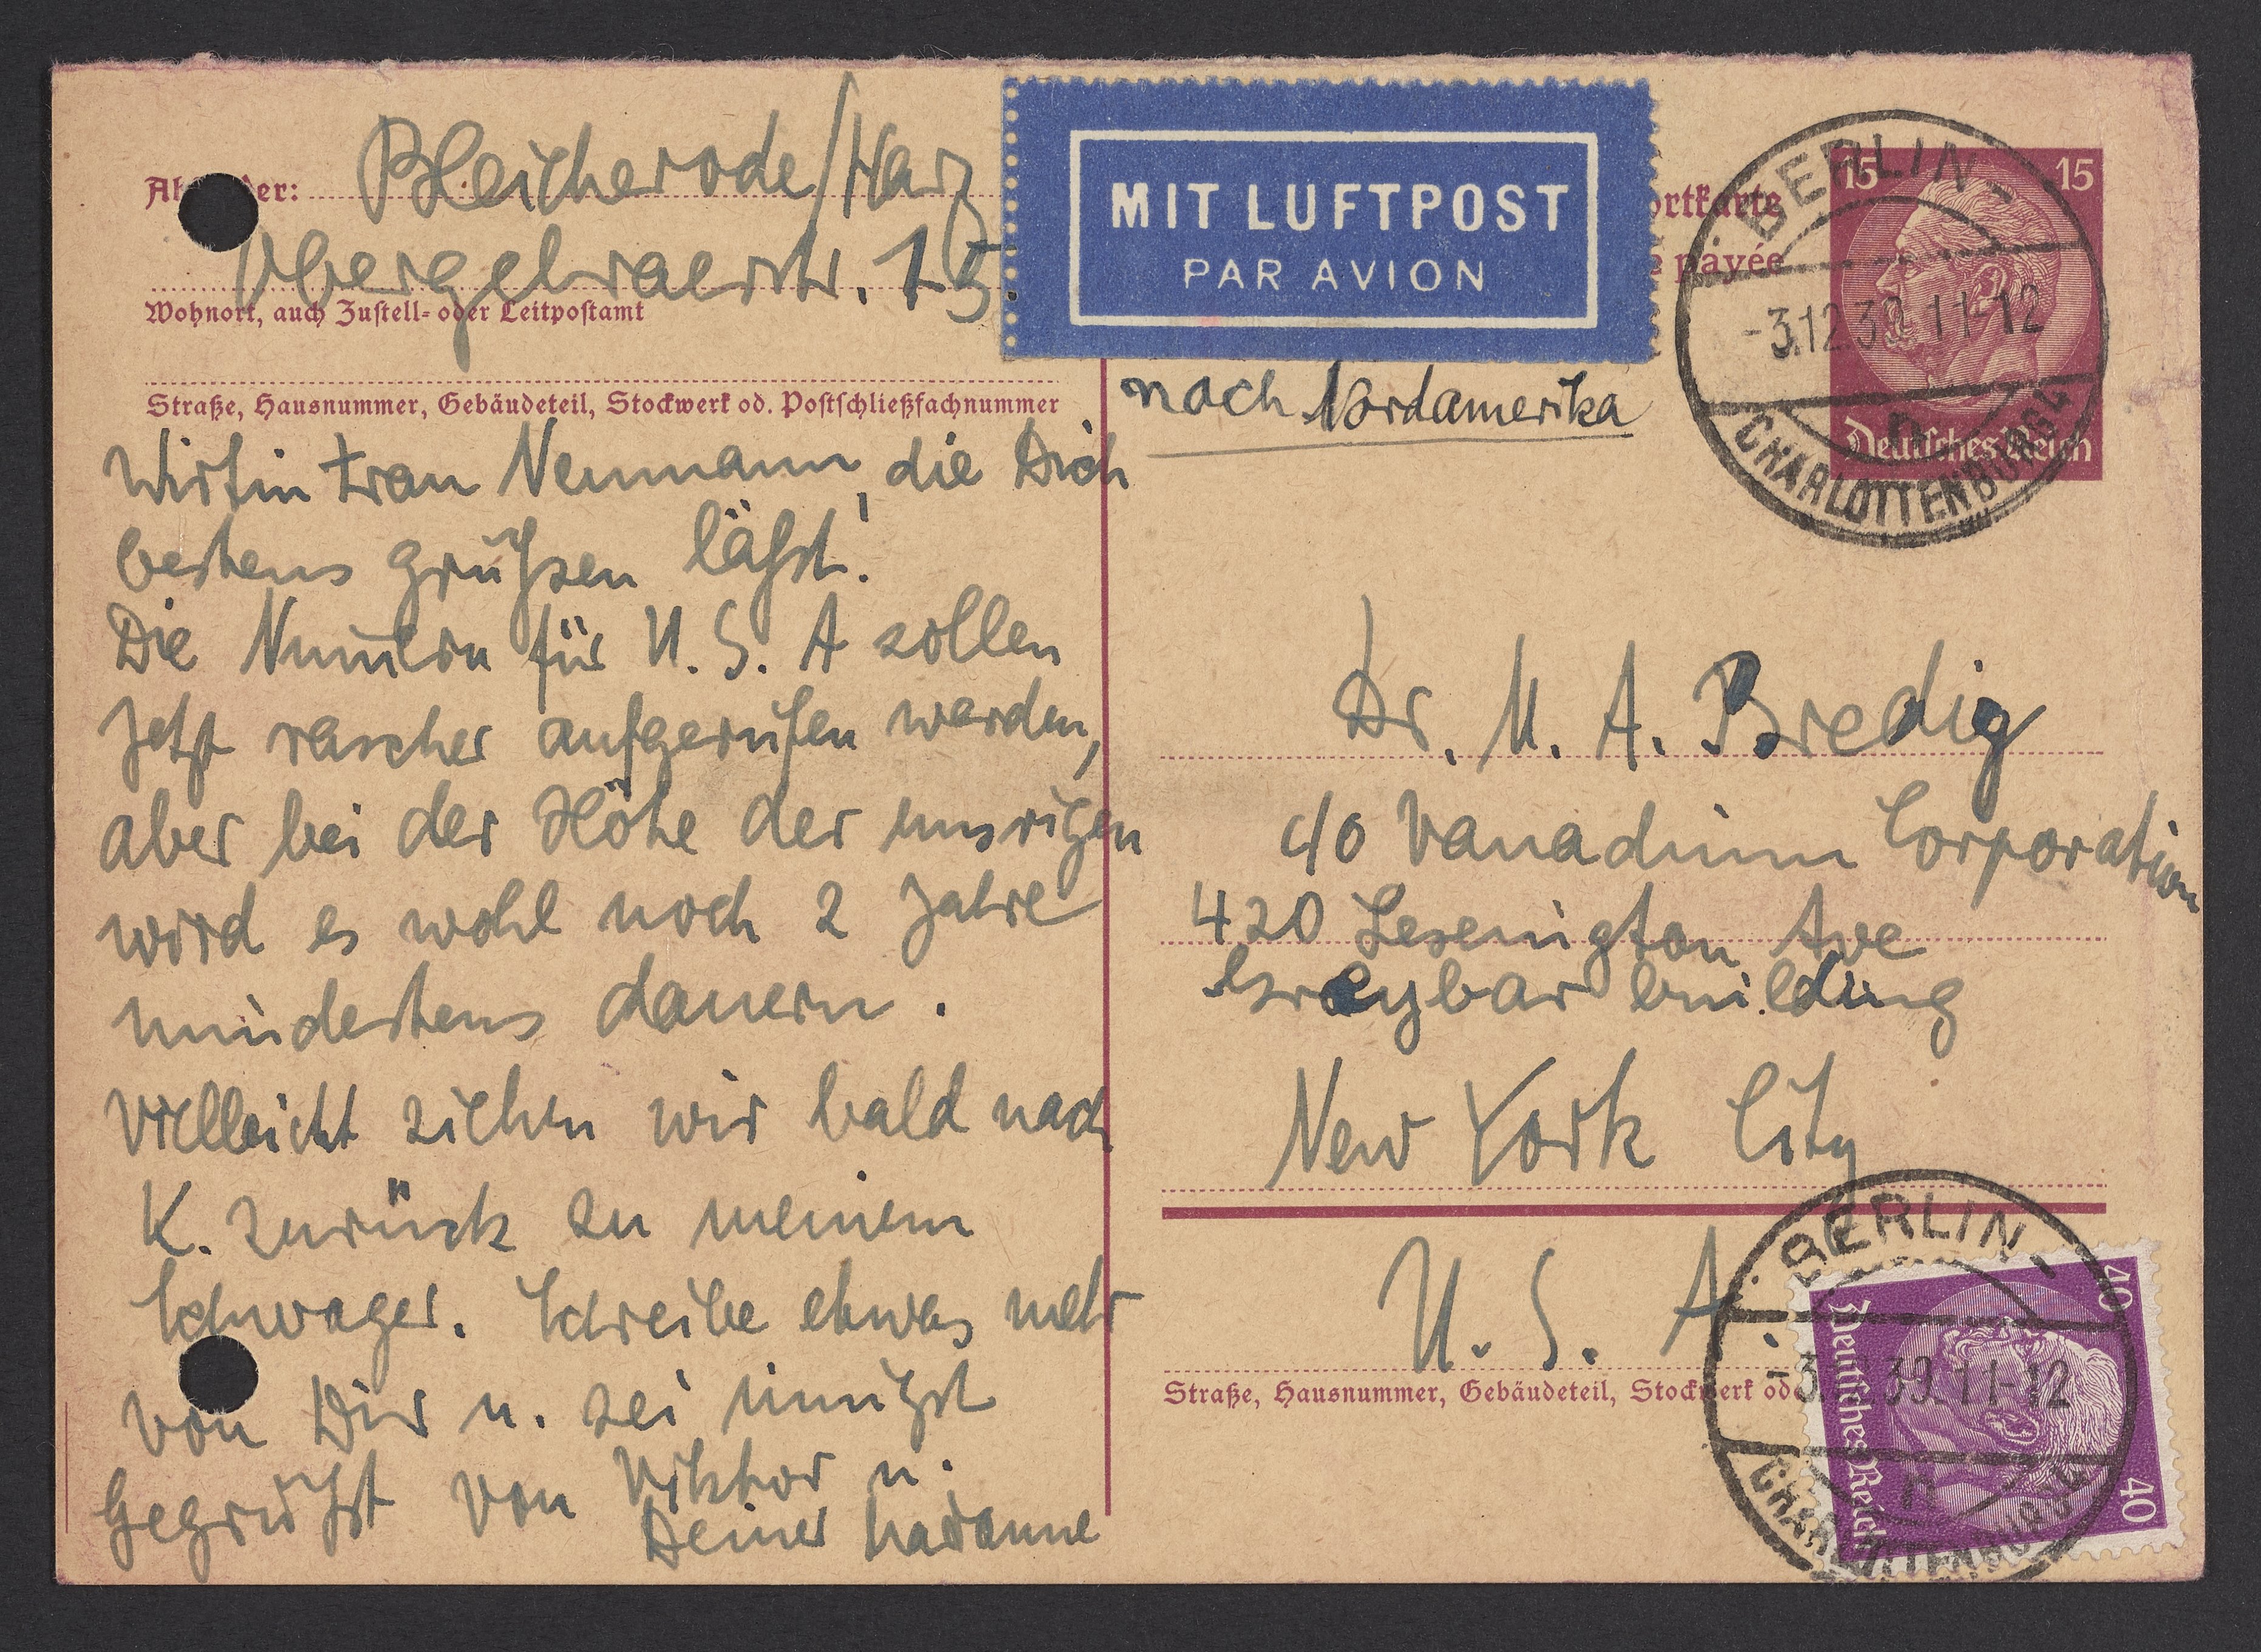 Absender: Bleicherode/Harz
Obergebraerstr. 15.
Wohnort, auch Zustell- oder Leitpostamt
Straße, Hausnummer, Gebäudeteil, Stockwerk od. Postschließfachnummer
Wirtin Frau Neumann, die Dich
bestens grüßsen läßst!
Die Numern für U. S. A sollen
jetzt rascher aufgerufen werden,
aber bei der Höhe der unsrigen
wird es wohl noch 2 Jahre
mindestens dauern.
Vielleicht ziehen wir bald nach
K. zurück zu meinem
Schwager. Schreibe etwas mehr
von Dir u. sei innigst
Gegrüßt von Viktor u.
Deiner
MIT LUFTPOST
PAR AVION
ortkarte
e payée
nach Nordamerika
15 15
Deutsches Reich
BERLIN-
-3.12.39.11-12
n
CHARLOTTENBURG 4
Dr. M. A. Bredig
c/o Vanadium Corporation
420 Lexenigton Ave
Graybar building
New York City
U. S. A.
Straße, Hausnummer, Gebäudeteil, Stockwerk od
40 40
Deutsches Reich
BERLIN-
-3. 39.11-12
n
CHARLOTTENBURG